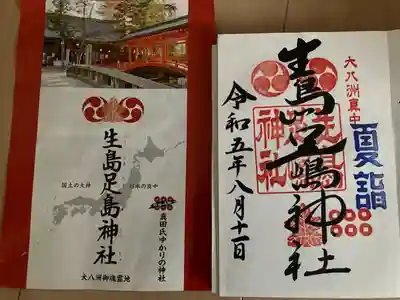 生島足島神社
国土の大神
日本の真中
真田氏ゆかりの神社
大八洲御魂霊地
大八洲真中
夏詣
生島足嶋神社
令和五年八月十一日